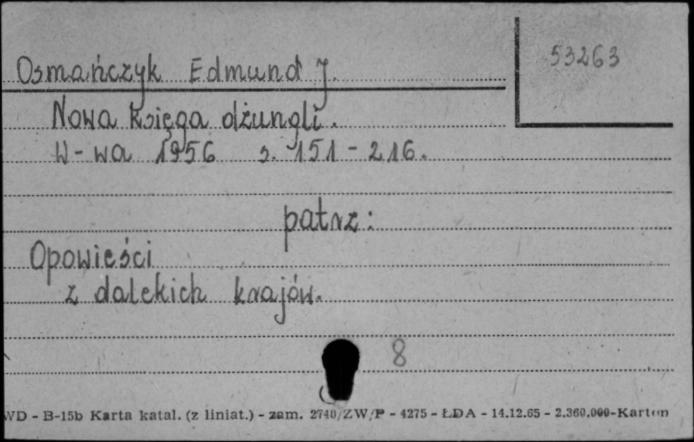 53263
Osmańczyk Edmund J.
Nowa księga dżungli.
W-wa 1956 s. 151-216.
patrz:
Opowieści
z dalekich krajów.
8
WD - B-15b Karta katal. (z liniat.) - zam. 2740/ZW/P - 4275 - ŁDA - 14.12.65 - 2.360.000-Karton